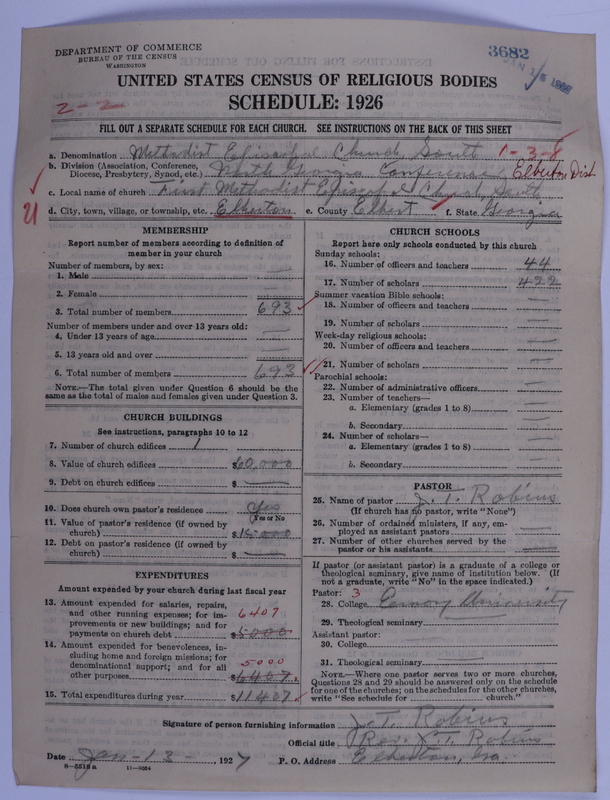 DEPARTMENT OF COMMERCE
BUREAU OF THE CENSUS
WASHINGTON
3682
UNITED STATES CENSUS OF RELIGIOUS BODIES
SCHEDULE: 1926
2-2
FILL OUT A SEPARATE SCHEDULE FOR EACH CHURCH. SEE INSTRUCTIONS ON THE BACK OF THIS SHEET
a. Denomination Methodist Episcopal Church, South 1-3-8
b. Division (Association, Conference, Diocese, Presbytery, Synod, etc.) North Georgia Conference Elberton Dist.
c. Local name of church First Methodist Episcopal Church, South
d. City, town, village, or township, etc. Elberton e. County Elbert f. State Georgia
MEMBERSHIP
Report number of members according to definition of member in your church
Number of members, by sex:
1. Male —
2. Female —
3. Total number of members 693
Number of members under and over 13 years old:
4. Under 13 years of age —
5. 13 years old and over —
6. Total number of members 693
NOTE.—The total given under Question 6 should be the same as the total of males and females given under Question 3.
CHURCH BUILDINGS
See instructions, paragraphs 10 to 12
7. Number of church edifices 1
8. Value of church edifices $60,000
9. Debt on church edifices $ —
10. Does church own pastor's residence Yes
Yes or No
11. Value of pastor's residence (if owned by church) $15,000
12. Debt on pastor's residence (if owned by church) $ —
EXPENDITURES
Amount expended by your church during last fiscal year
13. Amount expended for salaries, repairs, and other running expenses; for improvements or new buildings; and for payments on church debt 6407 $5000
14. Amount expended for benevolences, including home and foreign missions; for denominational support; and for all other purposes 5000 $6407.
15. Total expenditures during year $11407
CHURCH SCHOOLS
Report here only schools conducted by this church
Sunday schools:
16. Number of officers and teachers 44
17. Number of scholars 422
Summer vacation Bible schools:
18. Number of officers and teachers —
19. Number of scholars —
Week-day religious schools:
20. Number of officers and teachers —
21. Number of scholars —
Parochial schools:
22. Number of administrative officers —
23. Number of teachers—
a. Elementary (grades 1 to 8) —
b. Secondary —
24. Number of scholars—
a. Elementary (grades 1 to 8) —
b. Secondary —
PASTOR
25. Name of pastor J. T. Robins
(If church has no pastor, write "None")
26. Number of ordained ministers, if any, employed as assistant pastors —
27. Number of other churches served by the pastor or his assistants —
If pastor (or assistant pastor) is a graduate of a college or theological seminary, give name of institution below. (If not a graduate, write "No" in the space indicated.)
Pastor: 3
28. College Emory University
29. Theological seminary
Assistant pastor:
30. College
31. Theological seminary
NOTE.—Where one pastor serves two or more churches, Questions 28 and 29 should be answered only on the schedule for one of the churches; on the schedules for the other churches, write "See schedule for church."
Signature of person furnishing information J. T. Robins
Official title Rev. J. T. Robins
Date Jan-13- 1927 P. O. Address Elberton, Ga.
8-5518 a 11-9034